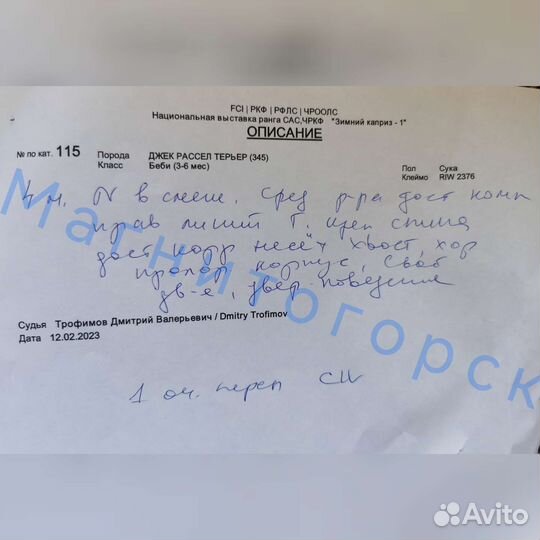 FCI | РКФ | РФЛС | ЧРООЛС
Национальная выставка ранга САС,ЧРКФ "Зимний каприз - 1"
ОПИСАНИЕ
№ по кат. 115 Порода ДЖЕК РАССЕЛ ТЕРЬЕР (345) Пол Сука
Класс Беби (3-6 мес) Клеймо RIW 2376
4 м. N в смене. Сред р-ра дост комп
прав линий Г. спина
дост корр несёт хвост, хор
пропор корпус, Своб
дв-е, увер. поведения
Судья Трофимов Дмитрий Валерьевич / Dmitry Trofimov
Дата 12.02.2023
1 оч. персп CW
Магнитогорск
Avito